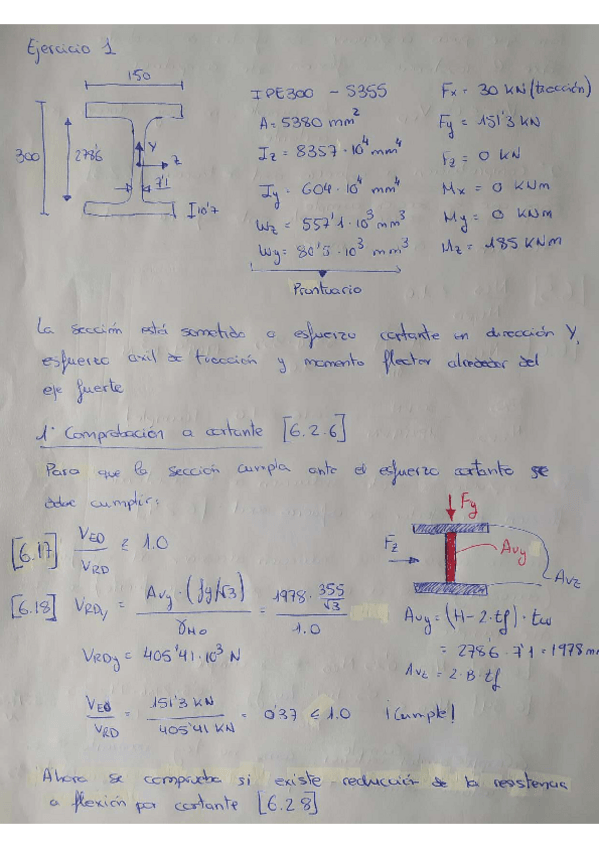 Ejercicio 1
150
300
278'6
Y
Z
7'1
10'7
IPE300 - S355
A = 5380 mm²
Iz = 8357·10⁴ mm⁴
Iy = 604·10⁴ mm⁴
Wz = 557'1·10³ mm³
Wy = 80'5·10³ mm³
Prontuario
Fx = 30 KN (tracción)
Fy = 151'3 KN
Fz = 0 KN
Mx = 0 KNm
My = 0 KNm
Mz = 185 KNm
La sección está sometida a esfuerzo cortante en dirección Y,
esfuerzo axil de tracción y momento flector alrededor del
eje fuerte
1º Comprobación a cortante [6.2.6]
Para que la sección cumpla ante el esfuerzo cortante se
debe cumplir:
[6.17] VED / VRD ≤ 1.0
[6.18] VRDy = Avy · (fy/√3) / γM0 = 1978 · 355/√3 / 1.0
VRDy = 405'41·10³ N
VED / VRD = 151'3 KN / 405'41 KN = 0'37 ≤ 1.0 ¡Cumple!
Fy
Fz
Avy
Avz
Avy = (H - 2·tf) · tw
= 278'6 · 7'1 = 1978 m
Avz = 2·B·tf
Ahora se comprueba si existe reducción de la resistencia
a flexión por cortante [6.2.8]